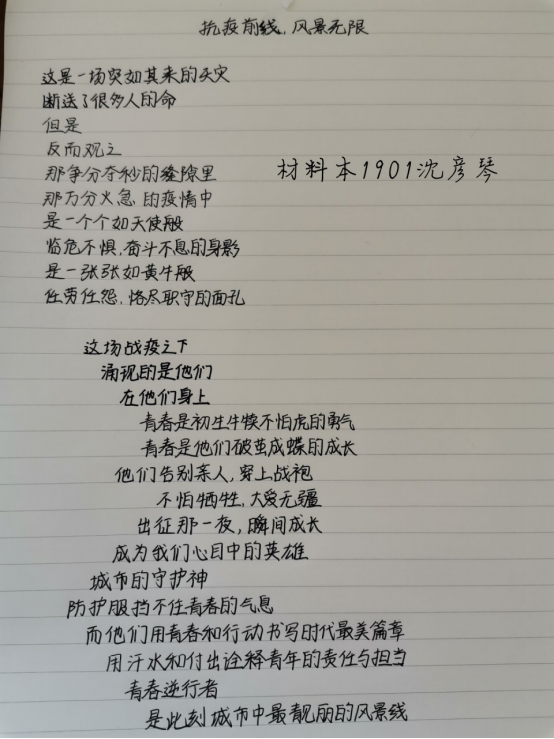 抗疫前线，风景无限
这是一场突如其来的天灾
断送了很多人的命
但是
反而观之
那争分夺秒的缝隙里
材料本1901沈彦琴
那万分火急的疫情中
是一个个如天使般
临危不惧，奋斗不息的身影
是一张张如黄牛般
任劳任怨，恪尽职守的面孔
这场战疫之下
涌现的是他们
在他们身上
青春是初生牛犊不怕虎的勇气
青春是他们破茧成蝶的成长
他们告别亲人，穿上战袍
不怕牺牲，大爱无疆
出征那一夜，瞬间成长
成为我们心目中的英雄
城市的守护神
防护服挡不住青春的气息
而他们用青春和行动书写时代最美篇章
用汗水和付出诠释青年的责任与担当
青春逆行者
是此刻城市中最靓丽的风景线